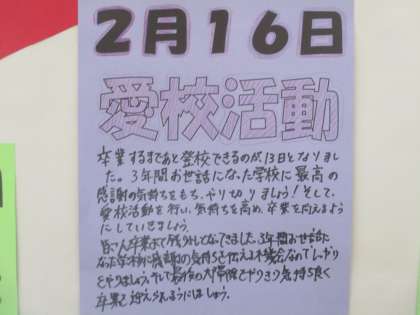 2月16日
愛校活動
卒業するまであと登校できるのが13日となりまし
た。3年間お世話になった学校に最高の
感謝の気持ちをもち、やりきりましょう!そして、
愛校活動を行い、気持ちを高め、卒業を向えるよう
にしていきましょう。
皆さん卒業まで残りわずかになってきました。3年間お世話に
なった学校に感謝の気持ちを伝える機会なのでしっかり
とやりましょう。そして最後の大掃除をやりきり気持ち良く
卒業を迎えられるようにしましょう。